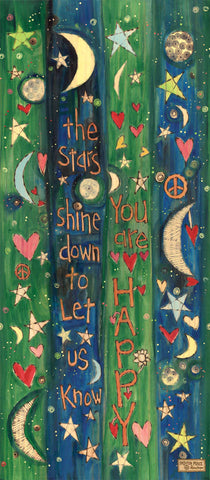 the
stars
shine
down
to
Let
us
Know
You are
HAPPY